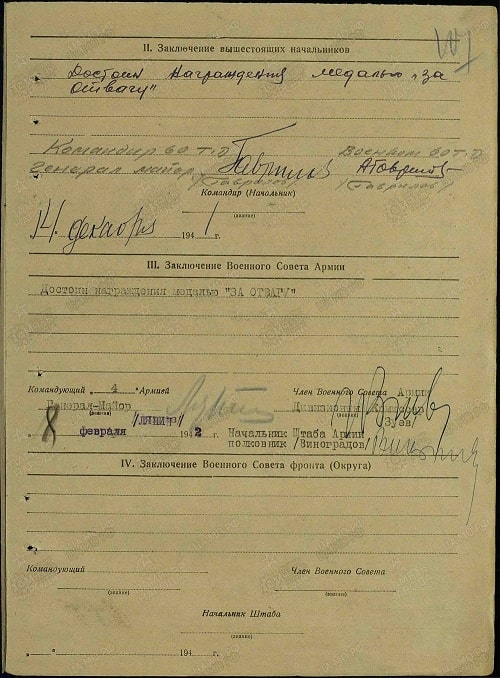 II. Заключение вышестоящих начальников
Достоин награждения медалью „за
отвагу"
Командир 60 т.д. Военком 60 т.д.
Генерал майор Гаврилов
(Гаврилов)
Командир (Начальник)
(звание)
14 декабря 1941 г.
III. Заключение Военного Совета Армии
Достоин награждения медалью "ЗА ОТВАГУ"
Командующий 4 Армией Член Военного Совета Армии
Генерал-Майор Дивизионный Комиссар
(звание) (звание)
/ЛЯПИН/ /Зуев/
8 февраля 1942 г. Начальник Штаба Армии
полковник /Виноградов/
IV. Заключение Военного Совета фронта (Округа)
Командующий Член Военного Совета
(звание) (звание)
Начальник Штаба
(звание)
„ " 194 г.